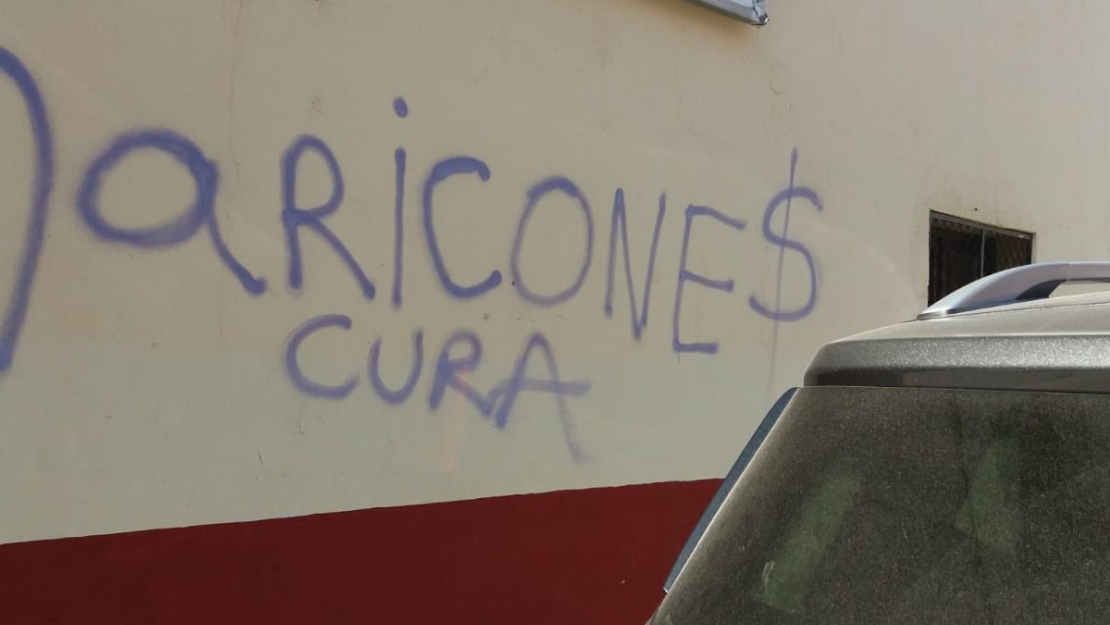 MaRiCONE$
CURA